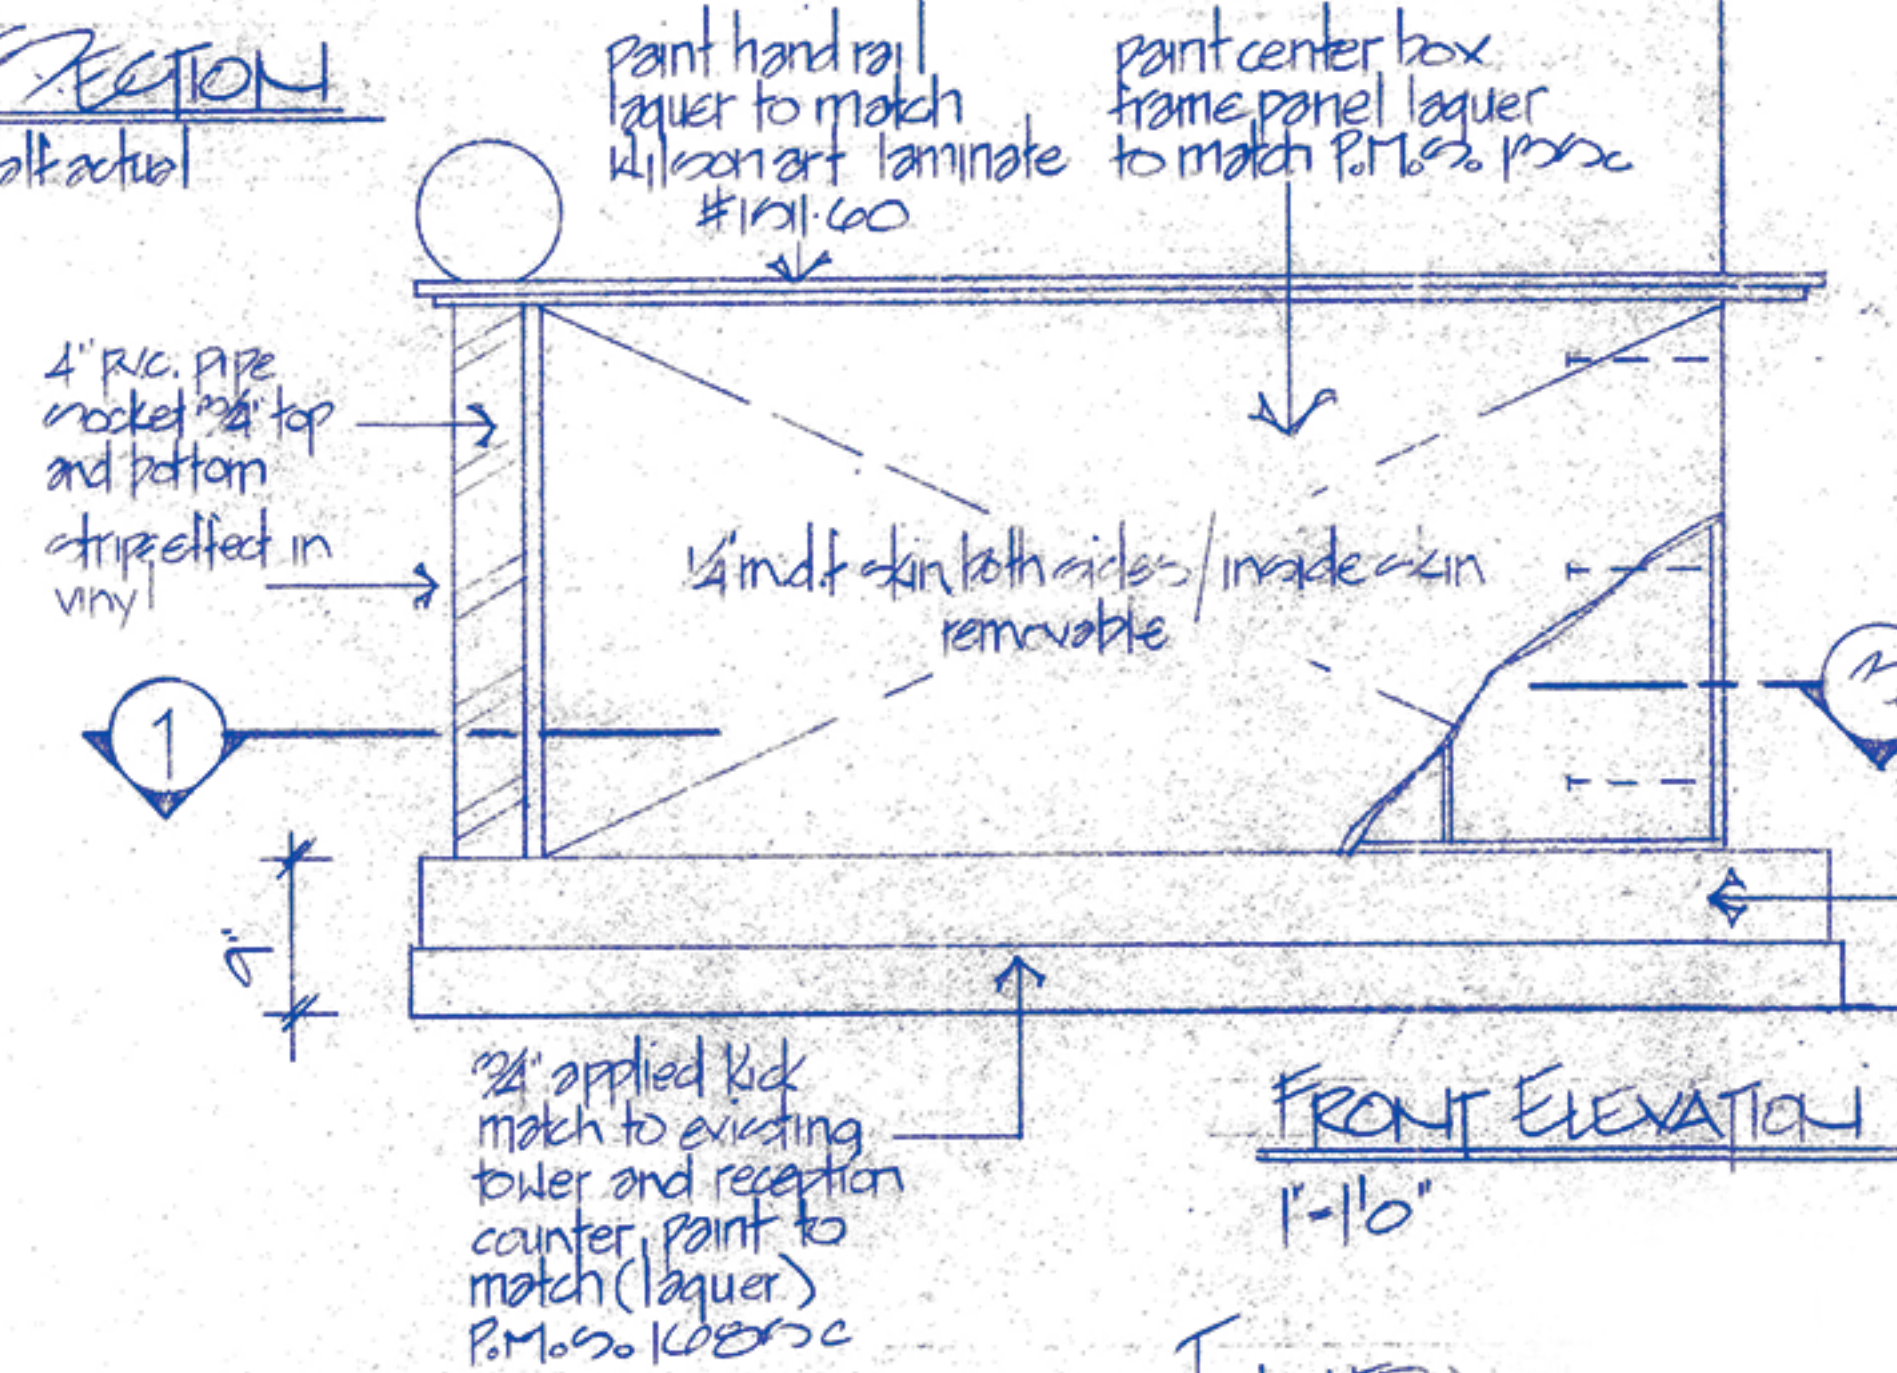 SECTION
half actual
paint hand rail
laquer to match
Wilsonart laminate
#1511-60
paint center box
frame panel laquer
to match P.M.S.
4" P.V.C. pipe
socket 3/4" top
and bottom
stripe effect in
vinyl
1/4" m.d.f skin both sides/inside skin
removable
1
3
9"
3/4" applied kick
match to existing
tower and reception
counter, paint to
match (laquer)
P.M.S.
FRONT ELEVATION
1"-1'0"